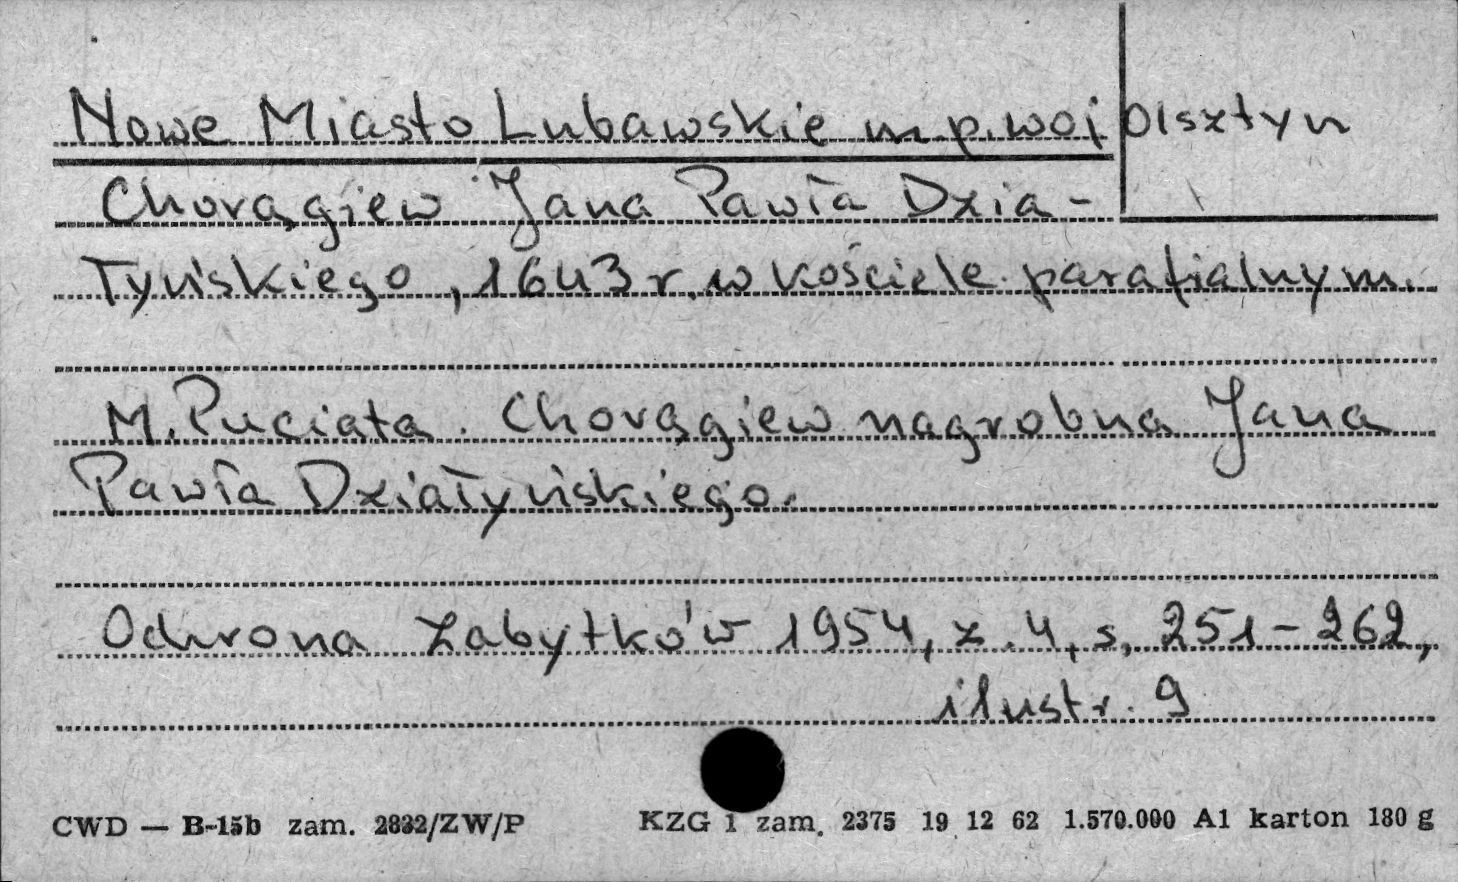 Nowe Miasto Lubawskie m.p. woj Olsztyn
Chorągiew Jana Pawła Dzia-
łyńskiego, 1643 r. w kościele parafialnym.
M. Puciata. Chorągiew nagrobna Jana
Pawła Działyńskiego.
Ochrona Zabytków 1954, z. 4, s. 251-262,
ilustr. 9
CWD — B-15b zam. 2832/ZW/P KZG 1 zam. 2375 19 12 62 1.570.000 A1 karton 180 g